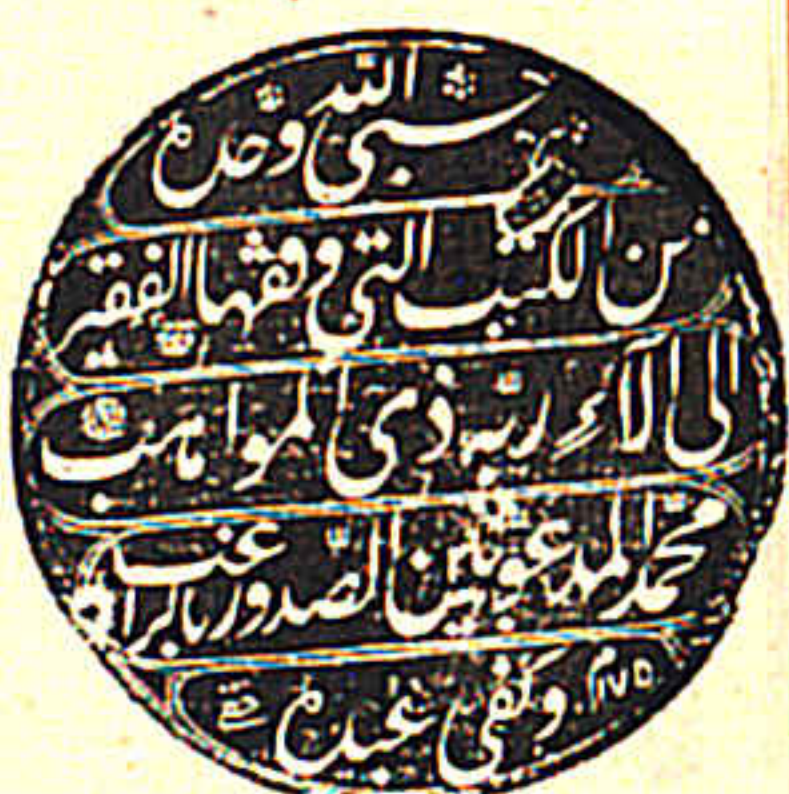 حسبي الله وحده
من الكتب التي وقفها الفقير
الى آلاء ربه ذي المواهب
محمد المدعو بين الصدور بالراغب
وكفى عبيده